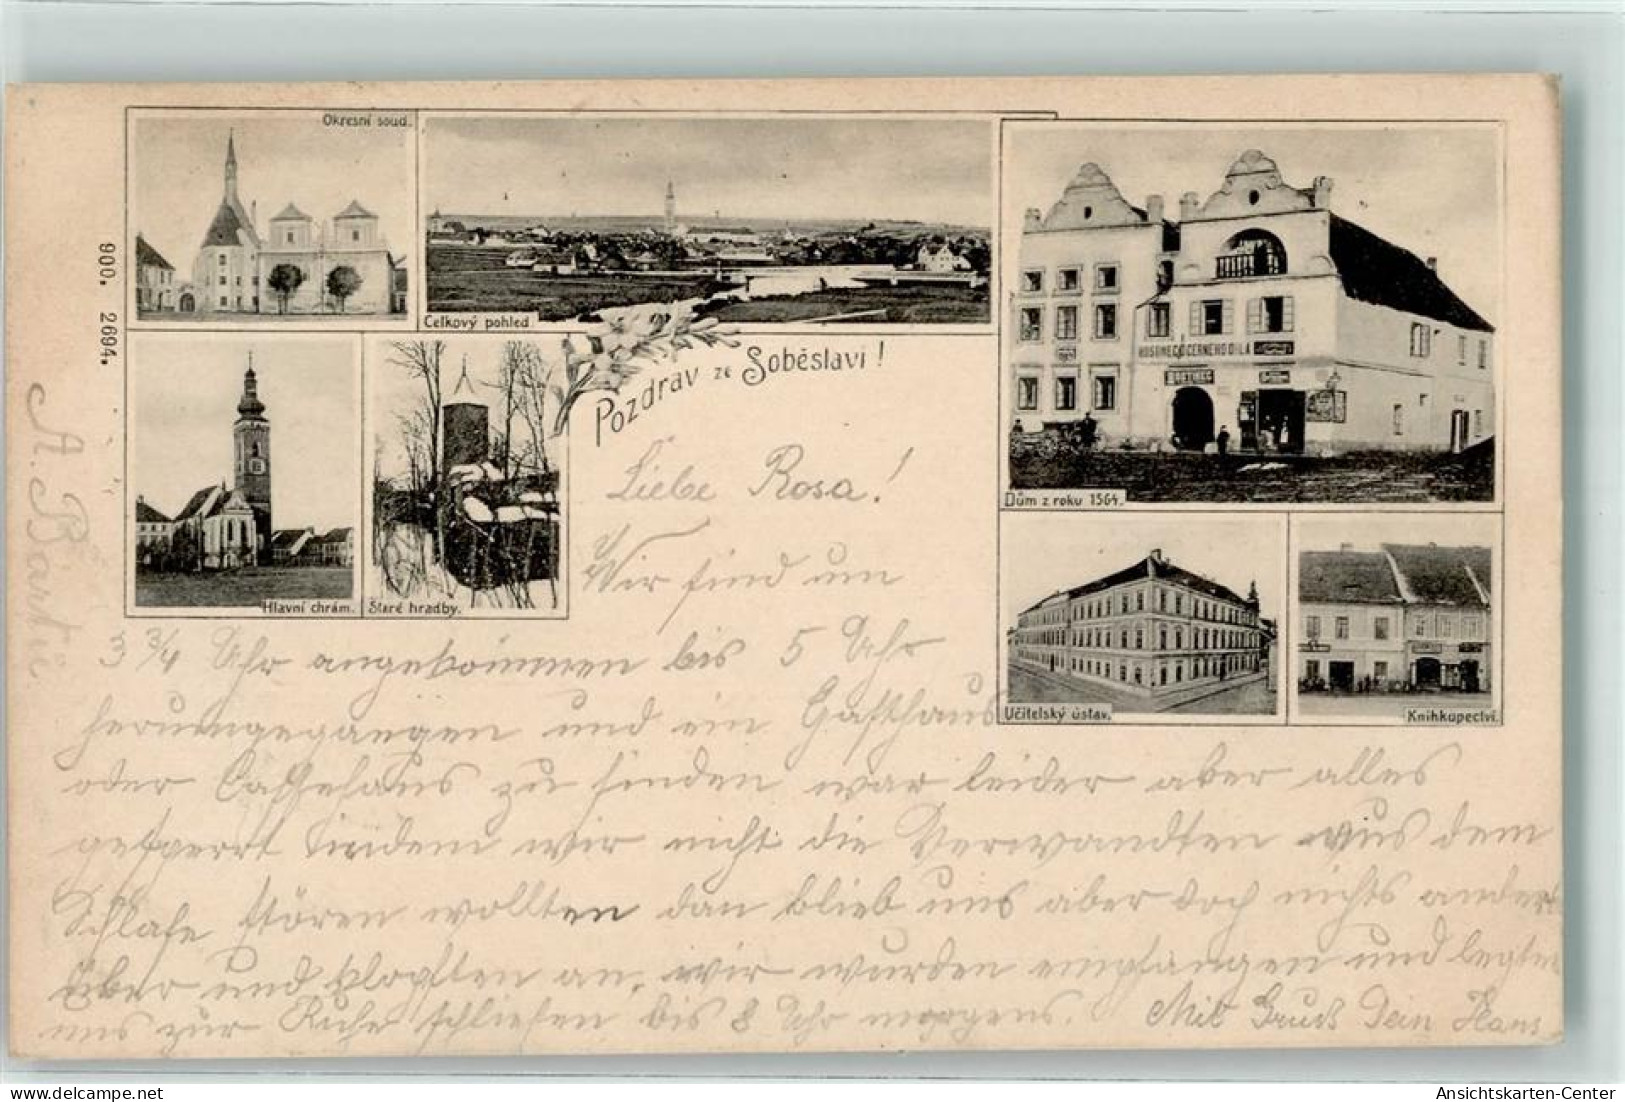 Okresní soud.
Celkový pohled.
Hlavní chrám.
Staré hradby.
Pozdrav ze Soběslavi!
HOSTINEC U ČERNÉHO ORLA
Dům z roku 1564.
Učitelský ústav.
Knihkupectví.
900. 2694.
Liebe Rosa!
Wir sind um
3 3/4 Uhr angekommen bis 5 Uhr
herumgegangen und ein Gasthaus
oder Caffehaus zu finden war leider aber alles
gesperrt indem wir nicht die Verwandten aus dem
Schlafe stören wollten dan blieb uns aber doch nichts anders
über und klopften an. wir wurden empfangen und legten
uns zur Ruhe schliefen bis 8 Uhr morgens. Mit Gruß Dein Hans
A. Bartič
Ansichtskarten-Center
delcampe.net